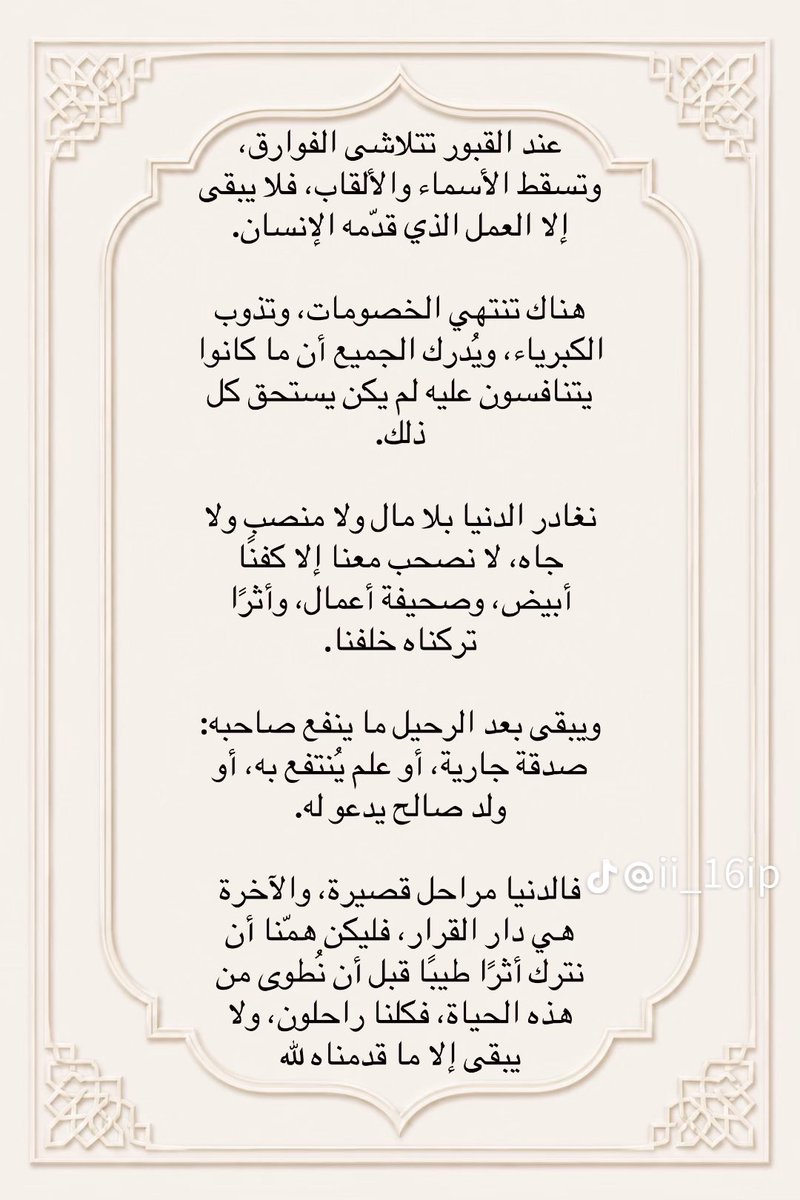 عند القبور تتلاشى الفوارق،
وتسقط الأسماء والألقاب، فلا يبقى
إلا العمل الذي قدّمه الإنسان.
هناك تنتهي الخصومات، وتذوب
الكبرياء، ويُدرك الجميع أن ما كانوا
يتنافسون عليه لم يكن يستحق كل
ذلك.
نغادر الدنيا بلا مال ولا منصب ولا
جاه، لا نصحب معنا إلا كفنًا
أبيض، وصحيفة أعمال، وأثرًا
تركناه خلفنا.
ويبقى بعد الرحيل ما ينفع صاحبه:
صدقة جارية، أو علم يُنتفع به، أو
ولد صالح يدعو له.
فالدنيا مراحل قصيرة، والآخرة
هي دار القرار، فليكن همّنا أن
نترك أثرًا طيبًا قبل أن نُطوى من
هذه الحياة، فكلنا راحلون، ولا
يبقى إلا ما قدمناه لله
@ii_16ip